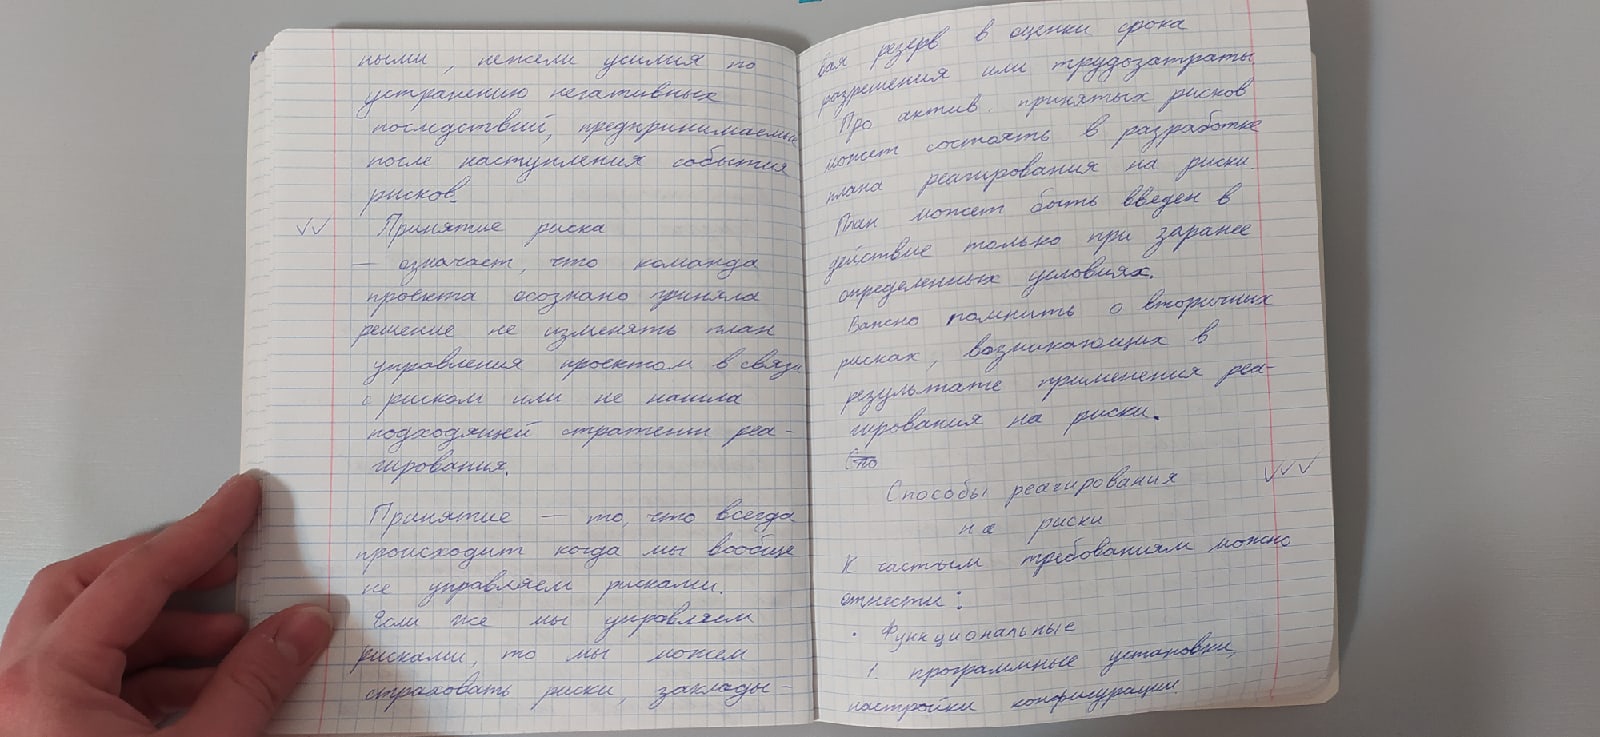 ными, нежели усилия по
устранению негативных
последствий, предпринимаемые
после наступления события
рисков.
Принятие риска
– означает, что команда
проекта осознано приняла
решение не изменять план
управления проектом в связи
с риском или не нашла
подходящей стратегии реа-
гирования.
Принятие – то, что всегда
происходит когда мы вообще
не управляем рисками.
Если же мы управляем
рисками, то мы можем
страховать риски, заклады-
вая резерв в оценки срока
разрешения или трудозатраты
Про актив. принятых рисков
может состоять в разработке
плана реагирования на риски.
План может быть введен в
действие только при заранее
определенных условиях.
Важно помнить о вторичных
рисках, возникающих в
результате применения реа-
гирования на риски.
Способы реагирования
на риски
К частым требованиям можно
отнести:
· Функциональные
1. программные установки,
настройки конфигурации.